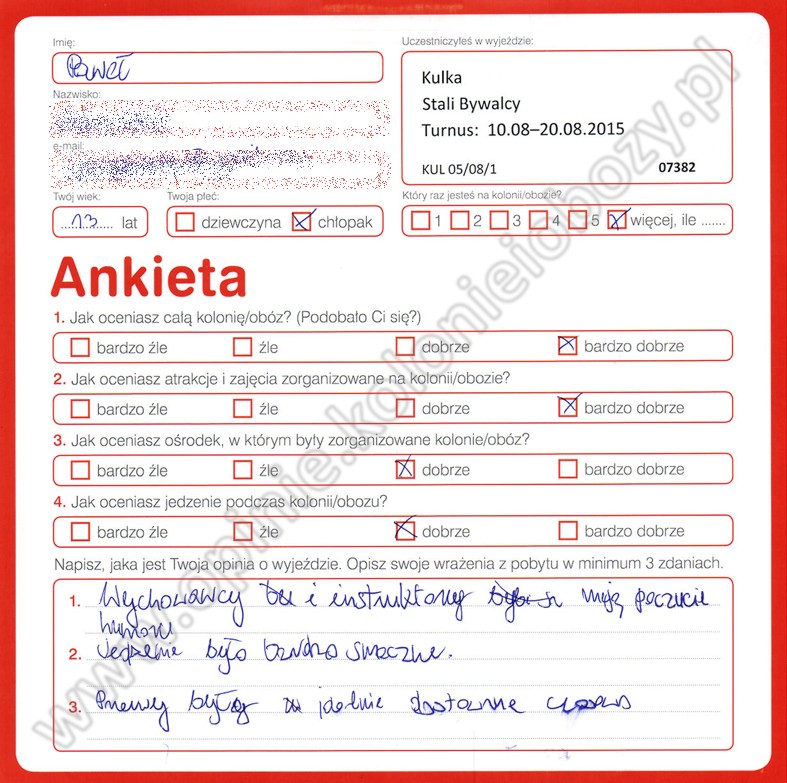 Imię:
Paweł
Uczestniczyłeś w wyjeździe:
Kulka
Stali Bywalcy
Turnus: 10.08–20.08.2015
KUL 05/08/1 07382
Nazwisko:
e-mail:
Twój wiek: Twoja płeć: Który raz jesteś na kolonii/obozie?
13 lat dziewczyna chłopak 1 2 3 4 5 więcej, ile .......
Ankieta
1. Jak oceniasz całą kolonię/obóz? (Podobało Ci się?)
bardzo źle źle dobrze bardzo dobrze
2. Jak oceniasz atrakcje i zajęcia zorganizowane na kolonii/obozie?
bardzo źle źle dobrze bardzo dobrze
3. Jak oceniasz ośrodek, w którym były zorganizowane kolonie/obóz?
bardzo źle źle dobrze bardzo dobrze
4. Jak oceniasz jedzenie podczas kolonii/obozu?
bardzo źle źle dobrze bardzo dobrze
Napisz, jaka jest Twoja opinia o wyjeździe. Opisz swoje wrażenia z pobytu w minimum 3 zdaniach.
1. Wychowawcy i instruktorzy mają poczucie
humoru
2. Jedzenie było bardzo smaczne.
3. były idelnie
www.opinie.kolonieiobozy.pl